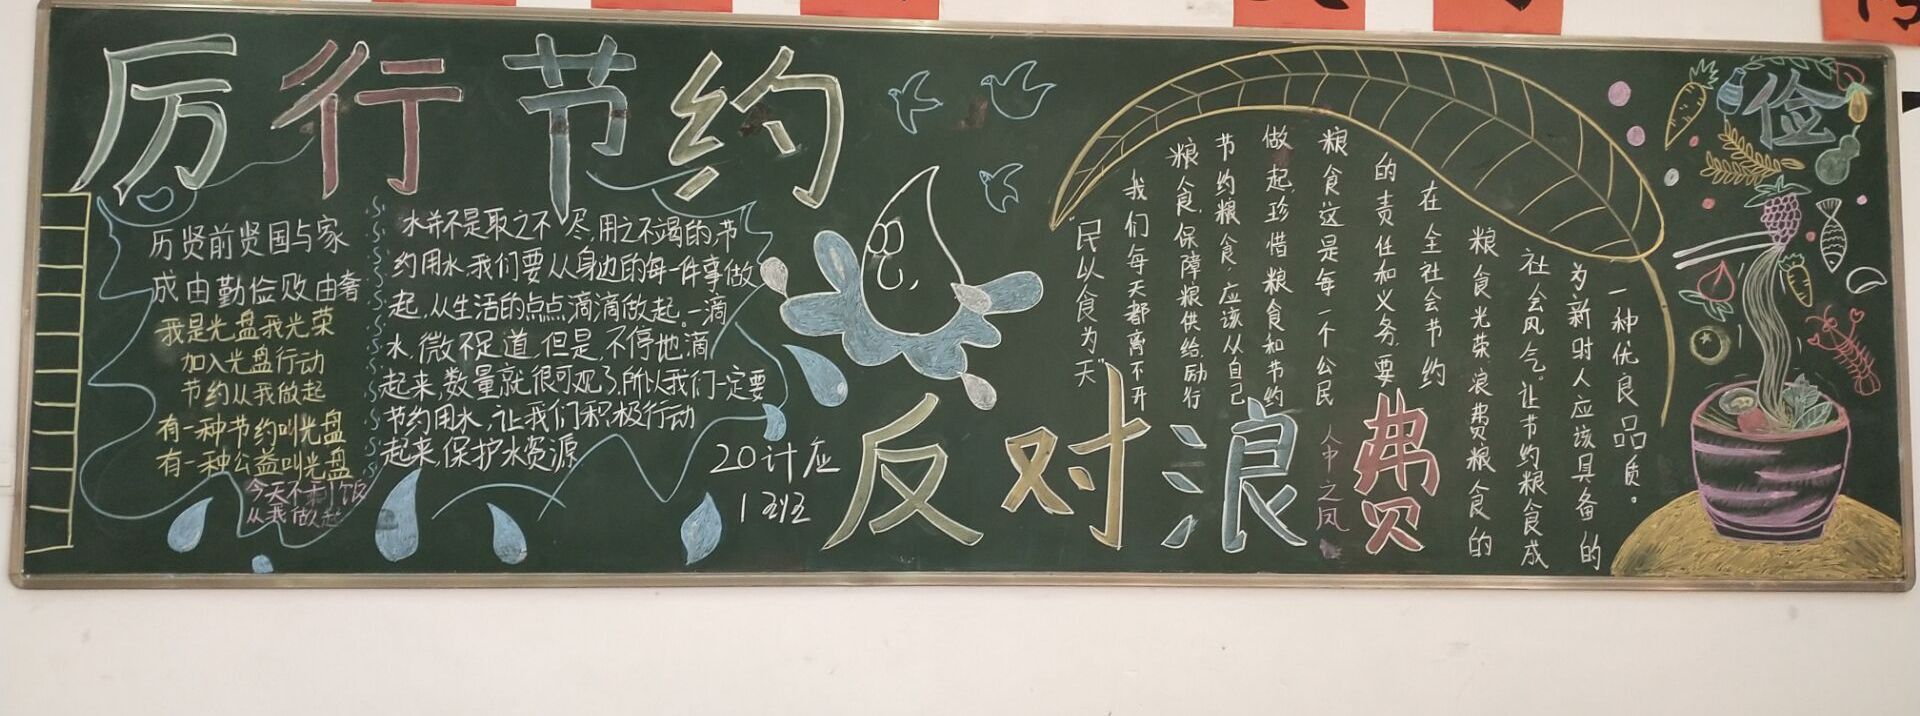 厉行节约
历贤前贤国与家
成由勤俭败由奢
我是光盘我光荣
加入光盘行动
节约从我做起
有一种节约叫光盘
有一种公益叫光盘
今天不剩饭
从我做起
水并不是取之不尽,用之不竭的,节
约用水,我们要从身边的每一件事做
起,从生活的点点滴滴做起。一滴
水,微不足道,但是,不停地滴
起来,数量就很可观了,所以我们一定要
节约用水,让我们积极行动
起来,保护水资源
20计应
1班
反对浪费
"民以食为天"
我们每天都离不开
粮食,保障粮供给,励行
节约粮食,应该从自己
做起,珍惜粮食和节约
粮食,这是每一个公民
的责任和义务,要
在全社会节约
粮食光荣浪费粮食的
社会风气。让节约粮食成
为新时人应该具备的
一种优良品质。
人中之凤
俭